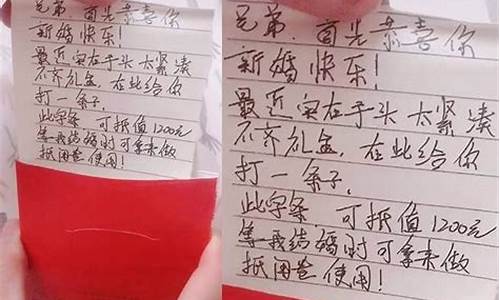 兄弟.首先恭喜你
新婚快乐!
最近实在手头太紧凑
不齐礼金,在此给你
打一条子,
此字条 可抵值1200元
等我结婚时可拿来做
抵用卷使用!
兄弟.首先恭喜你
新婚快乐!
最近实在手头太紧凑
不齐礼金,在此给你
打一条子,
此字条 可抵值1200元
等我结婚时可拿来做
抵用卷使用!